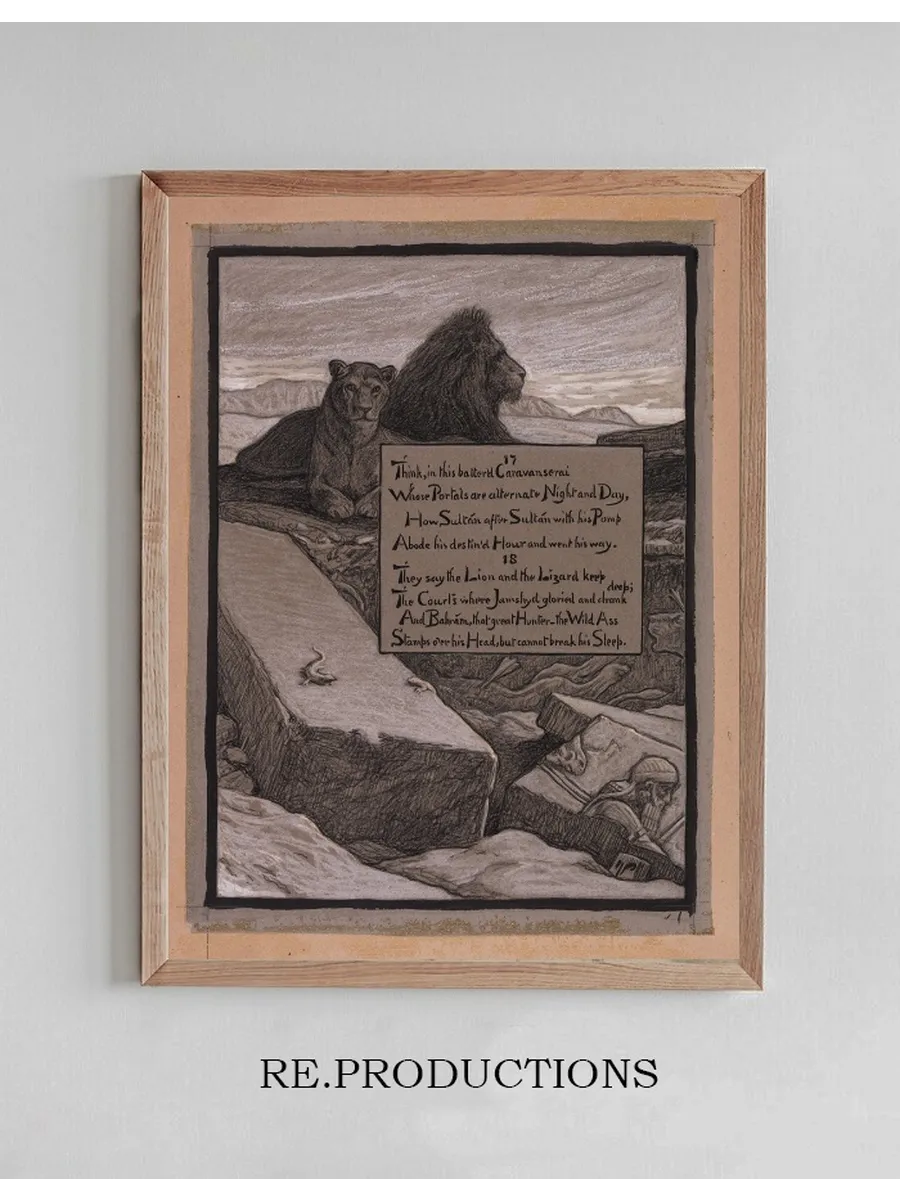 17
Think, in this batter'd Caravanserai
Whose Portals are alternate Night and Day,
How Sultán after Sultán with his Pomp
Abode his destin'd Hour and went his way.
18
They say the Lion and the Lizard keep
The Courts where Jamshyd gloried and drank deep;
And Bahrám, that great Hunter—the Wild Ass
Stamps over his Head, but cannot break his Sleep.
RE.PRODUCTIONS